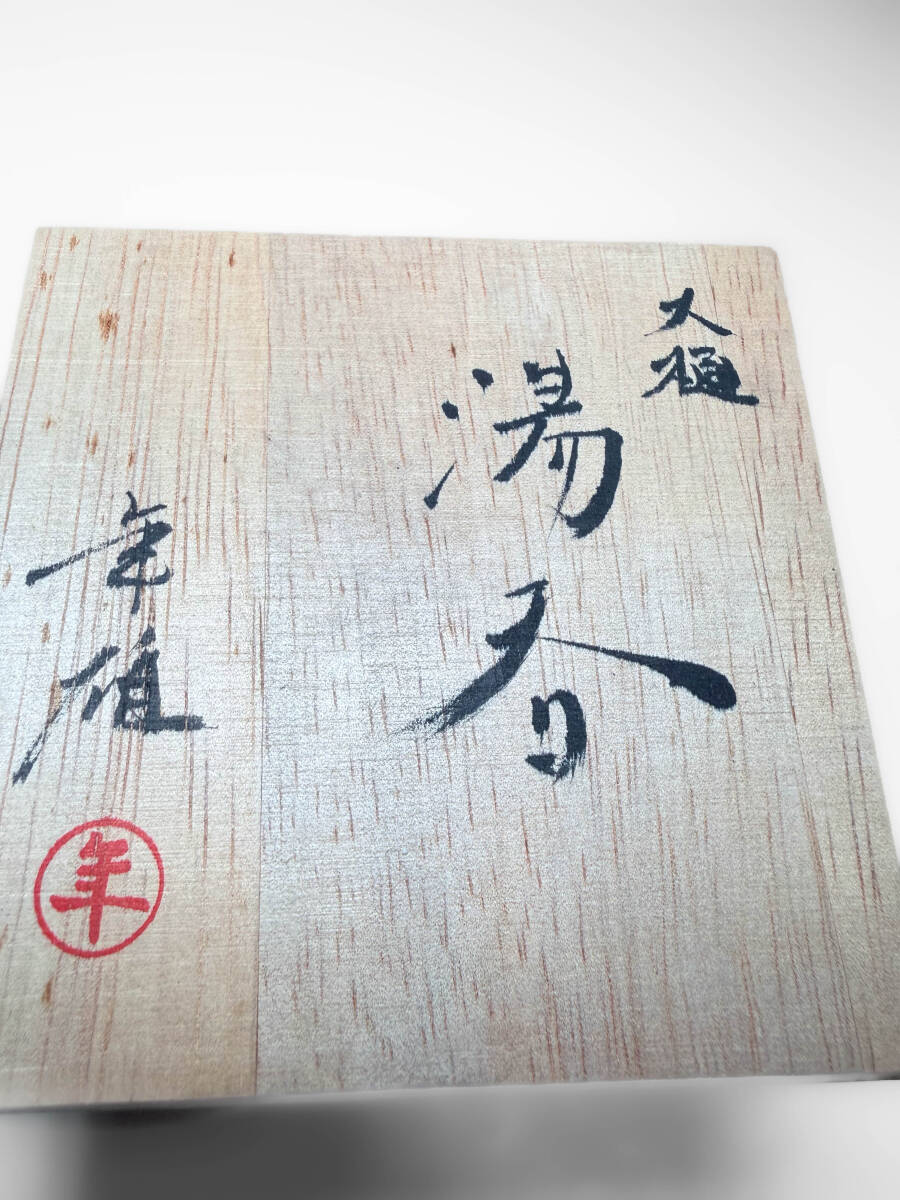 大樋
湯呑
年雄
年